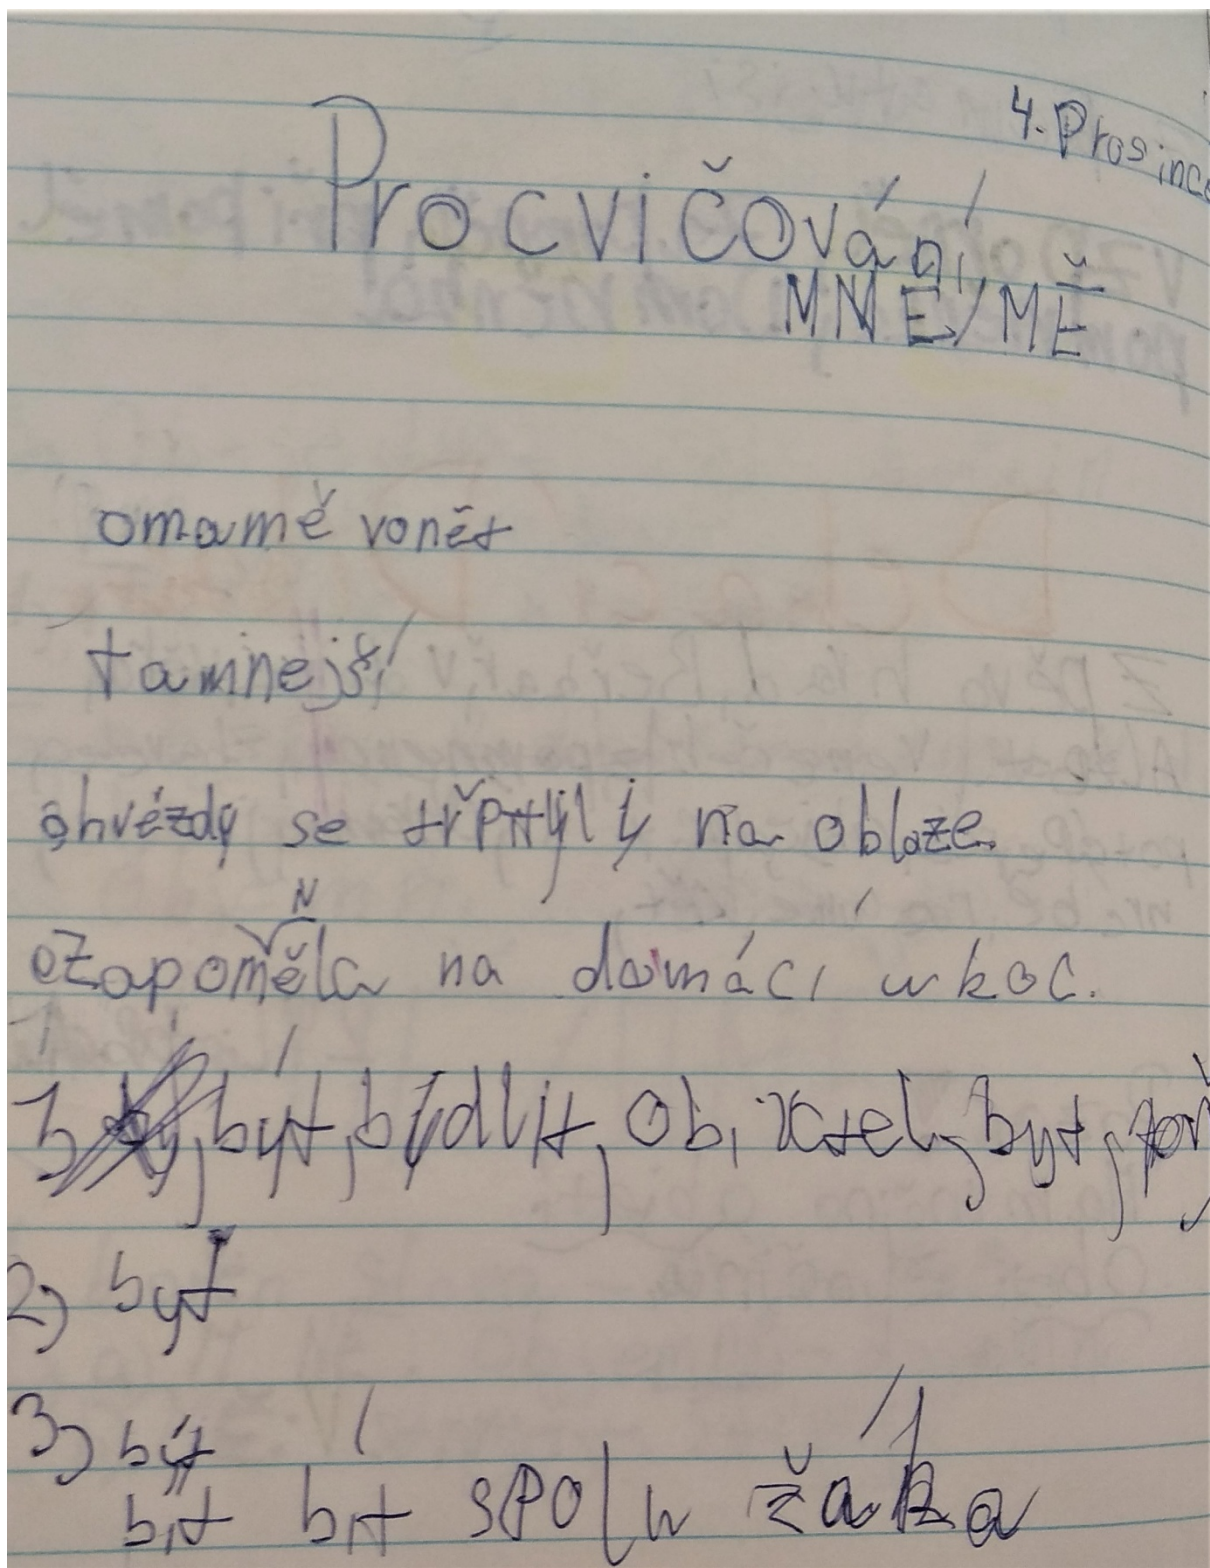 4. Prosince
Procvičování
MNE/MĚ
omamě vonět
tamnejší
hvězdy se třpytyly na obloze.
zapoměla na domácí ukol.
N
1) být, bydlit, obixtel, byt,
2) byt
3) být
bit bít spolu žáka